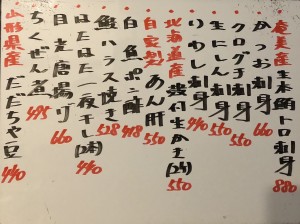 奄美産 生本鮪トロ刺身 880
かつお刺身 550
クログチ刺身 550
生にしん刺身 550
いわし刺身 440
北海道産 殻付生かき(2ヶ) 550
自家製 あん肝 550
白魚ポン酢 418
鮭ハラス焼き 528
はたはた一夜干し(2本) 440
目光唐揚げ 660
ちくぜん煮 495
山形県産 だだちゃ豆 440